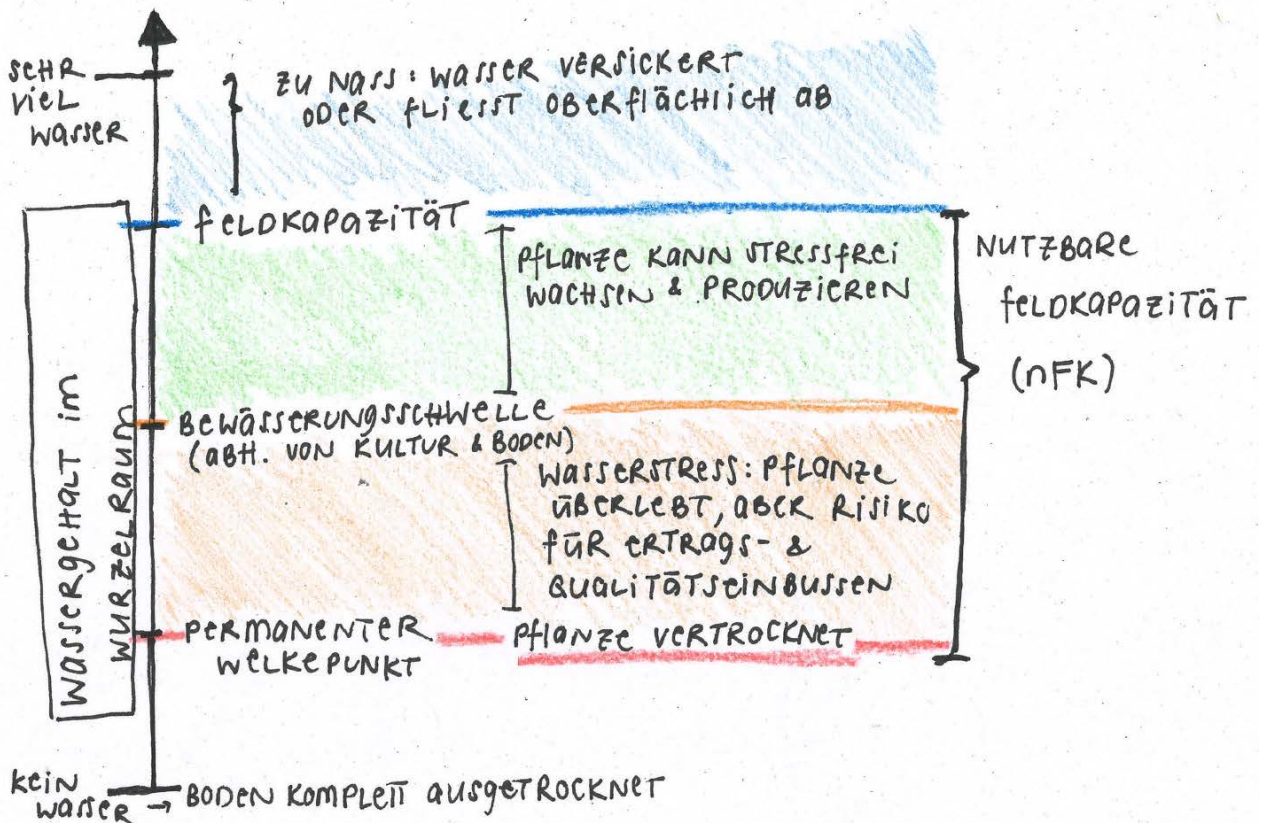 SEHR
VIEL
WASSER
ZU NASS: WASSER VERSICKERT
ODER FLIESST OBERFLÄCHLICH AB
FELDKAPAZITÄT
PFLANZE KANN STRESSFREI
WACHSEN & PRODUZIEREN
NUTZBARE
FELDKAPAZITÄT
(nFK)
WASSERGEHALT IM
WURZELRAUM
BEWÄSSERUNGSSCHWELLE
(ABH. VON KULTUR & BODEN)
WASSERSTRESS: PFLANZE
ÜBERLEBT, ABER RISIKO
FÜR ERTRAGS- &
QUALITÄTSEINBUSSEN
PERMANENTER
WELKEPUNKT
PFLANZE VERTROCKNET
KEIN
WASSER
→ BODEN KOMPLETT AUSGETROCKNET